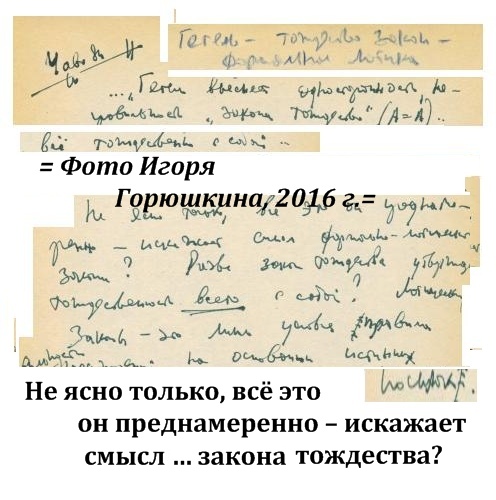 Гегель – тождество закон –
формальная логика
... „Гегель выясняет односторонность, не-
„закона тождества“ (A=A)..
всё тождественно с собой ..
= Фото Игоря
Горюшкина, 2016 г.=
Не ясно только, всё это он преднаме-
ренно – искажает смысл формально-логических
законов? Разве закон тождества утвержда
тождественность всего с собой? Логические
Законы – это лишь условие правила
на основании истинных
Не ясно только, всё это
он преднамеренно – искажает
смысл ... закона тождества?